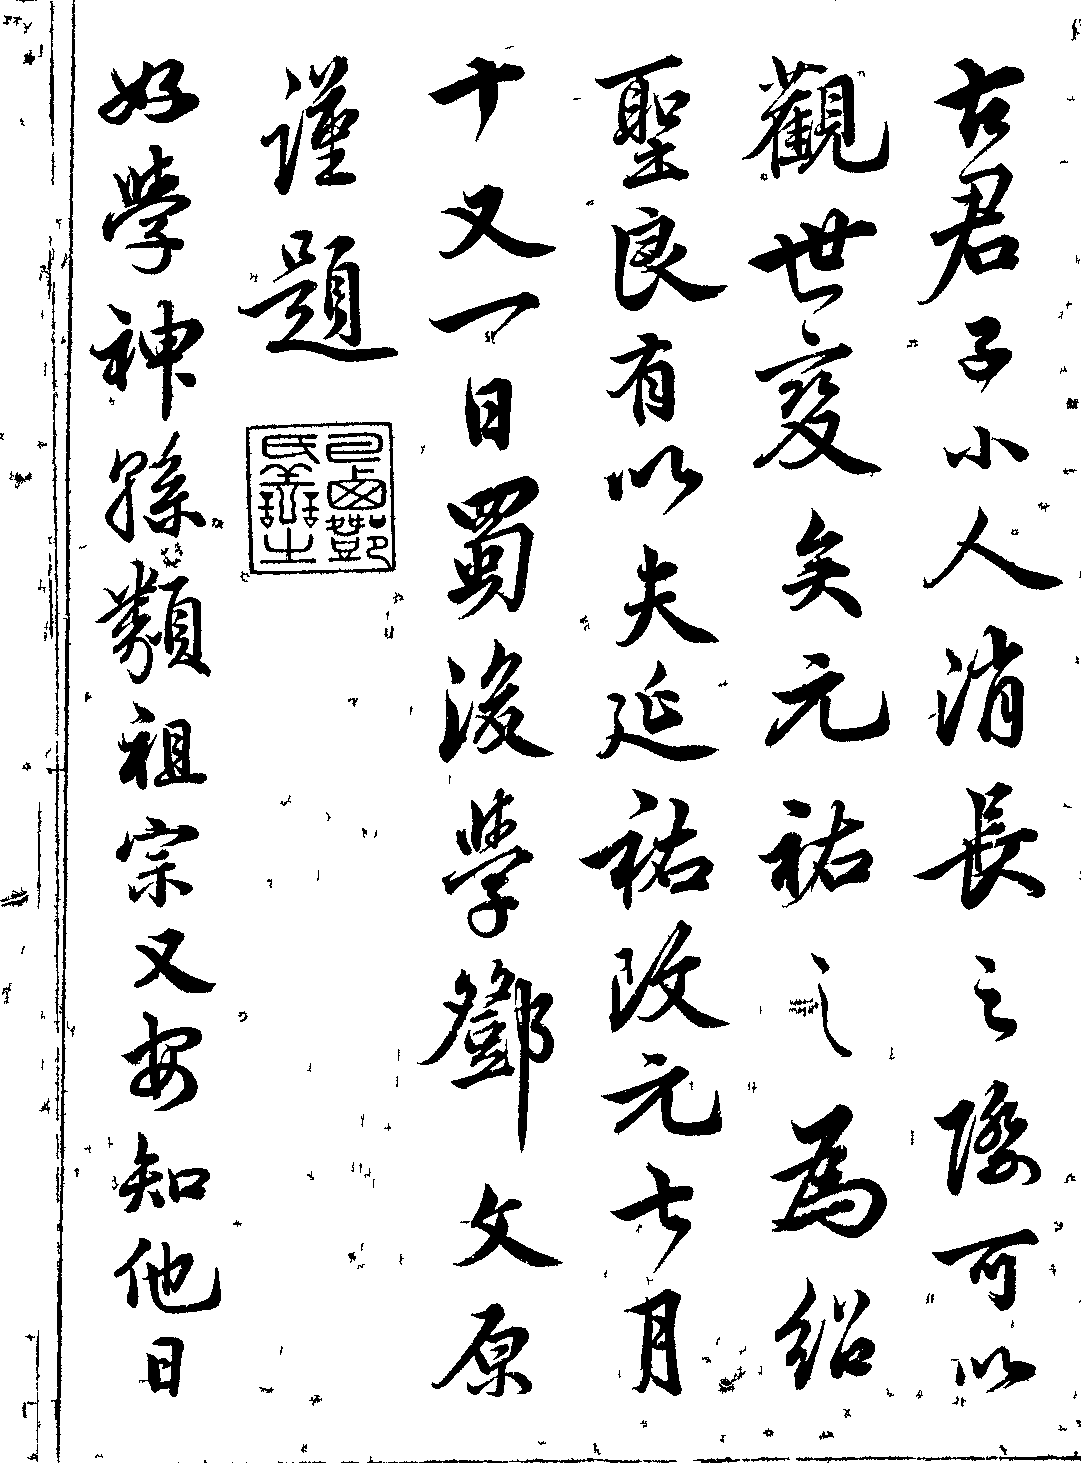 古君子小人消長之際可以
觀世變矣元祐之為紹
聖良有以夫延祐改元七月
十又一日蜀後學鄧文原
謹題
巴西鄧
氏善之
好學神孫類祖宗又安知他日